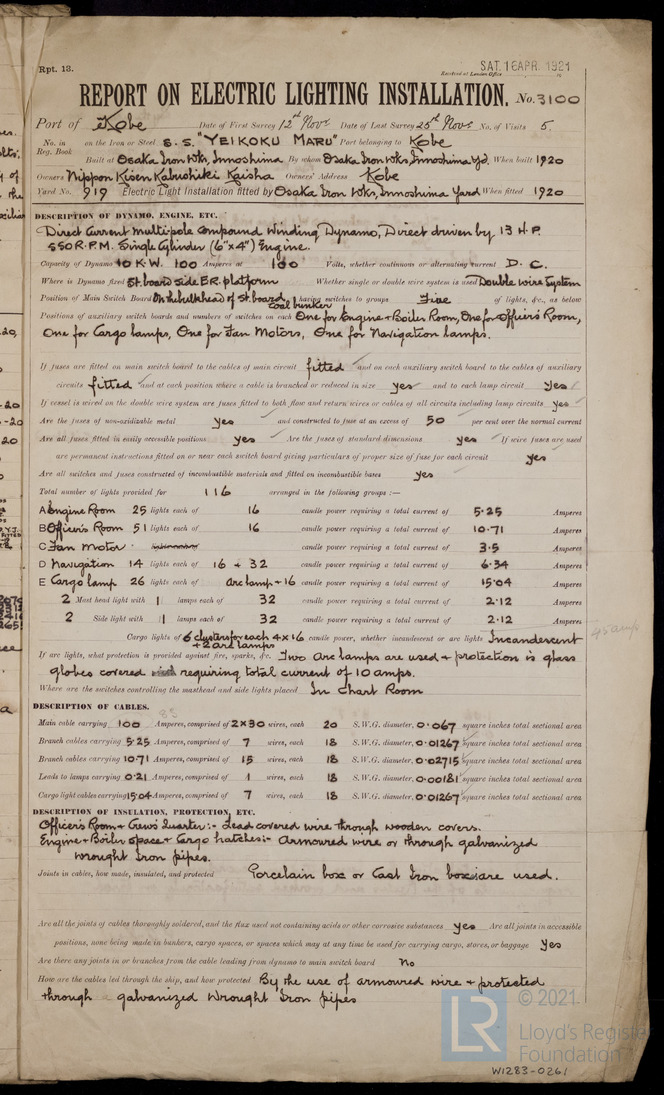 Rpt. 13.
SAT. 16 APR. 1921
Received at London Office
REPORT ON ELECTRIC LIGHTING INSTALLATION. No. 3100
Port of Kobe Date of First Survey 12th Novr Date of Last Survey 25th Novr No. of Visits 5.
No. in Reg. Book on the Iron or Steel S.S. "YEIKOKU MARU" Port belonging to Kobe
Built at Osaka Iron Wks, Innoshima By whom Osaka Iron Wks, Innoshima Yd. When built 1920
Owners Nippon Kisen Kabushiki Kaisha Owners' Address Kobe
Yard No. 919 Electric Light Installation fitted by Osaka Iron Wks, Innoshima Yard When fitted 1920
DESCRIPTION OF DYNAMO, ENGINE, ETC.
Direct Current Multipole Compound Winding Dynamo, Direct driven by 13 H.P.
550 R.P.M. Single Cylinder (6"x4") Engine.
Capacity of Dynamo 10 K.W. 100 Amperes at 100 Volts, whether continuous or alternating current D.C.
Where is Dynamo fixed St. board side E.R. platform Whether single or double wire system is used Double wire System
Position of Main Switch Board On bulkhead of St. board coal bunker having switches to groups Five of lights, &c., as below
Positions of auxiliary switch boards and numbers of switches on each One for Engine & Boiler Room, One for Officer's Room,
One for Cargo lamps, One for Fan Motors, One for Navigation lamps.
If fuses are fitted on main switch board to the cables of main circuit fitted and on each auxiliary switch board to the cables of auxiliary
circuits fitted and at each position where a cable is branched or reduced in size yes and to each lamp circuit yes
If vessel is wired on the double wire system are fuses fitted to both flow and return wires or cables of all circuits including lamp circuits yes
Are the fuses of non-oxidizable metal yes and constructed to fuse at an excess of 50 per cent over the normal current
Are all fuses fitted in easily accessible positions yes Are the fuses of standard dimensions yes If wire fuses are used
are permanent instructions fitted on or near each switch board giving particulars of proper size of fuse for each circuit yes
Are all switches and fuses constructed of incombustible materials and fitted on incombustible bases yes
Total number of lights provided for 116 arranged in the following groups :—
A Engine Room 25 lights each of 16 candle power requiring a total current of 5.25 Amperes
B Officer's Room 51 lights each of 16 candle power requiring a total current of 10.71 Amperes
C Fan Motor candle power requiring a total current of 3.5 Amperes
D Navigation 14 lights each of 16 + 32 candle power requiring a total current of 6.34 Amperes
E Cargo lamp 26 lights each of arc lamp + 16 candle power requiring a total current of 15.04 Amperes
2 Mast head light with 1 lamps each of 32 candle power requiring a total current of 2.12 Amperes
2 Side light with 1 lamps each of 32 candle power requiring a total current of 2.12 Amperes
Cargo lights of 6 clusters for each 4x16 + 2 arc lamps candle power, whether incandescent or arc lights Incandescent
If arc lights, what protection is provided against fire, sparks, &c. Two Arc lamps are used & protection is glass
globes covered requiring total current of 10 amps.
Where are the switches controlling the masthead and side lights placed In Chart Room
DESCRIPTION OF CABLES.
Main cable carrying 100 Amperes, comprised of 2x30 wires, each 20 S.W.G. diameter, 0.067 square inches total sectional area
Branch cables carrying 5.25 Amperes, comprised of 7 wires, each 18 S.W.G. diameter, 0.01267 square inches total sectional area
Branch cables carrying 10.71 Amperes, comprised of 15 wires, each 18 S.W.G. diameter, 0.02715 square inches total sectional area
Leads to lamps carrying 0.21 Amperes, comprised of 1 wires, each 18 S.W.G. diameter, 0.00181 square inches total sectional area
Cargo light cables carrying 15.04 Amperes, comprised of 7 wires, each 18 S.W.G. diameter, 0.01267 square inches total sectional area
DESCRIPTION OF INSULATION, PROTECTION, ETC.
Officer's Room & Crew's Quarter:- Lead covered wire through wooden covers.
Engine & Boiler space & Cargo hatches:- Armoured wire or through galvanized
wrought Iron pipes.
Joints in cables, how made, insulated, and protected Porcelain box or Cast Iron box are used.
Are all the joints of cables thoroughly soldered, and the flux used not containing acids or other corrosive substances yes Are all joints in accessible
positions, none being made in bunkers, cargo spaces, or spaces which may at any time be used for carrying cargo, stores, or baggage yes
Are there any joints in or branches from the cable leading from dynamo to main switch board No
How are the cables led through the ship, and how protected By the use of armoured wire & protected
through galvanized Wrought Iron pipes
© 2021
LR Lloyd's Register
Foundation
W1283-0261